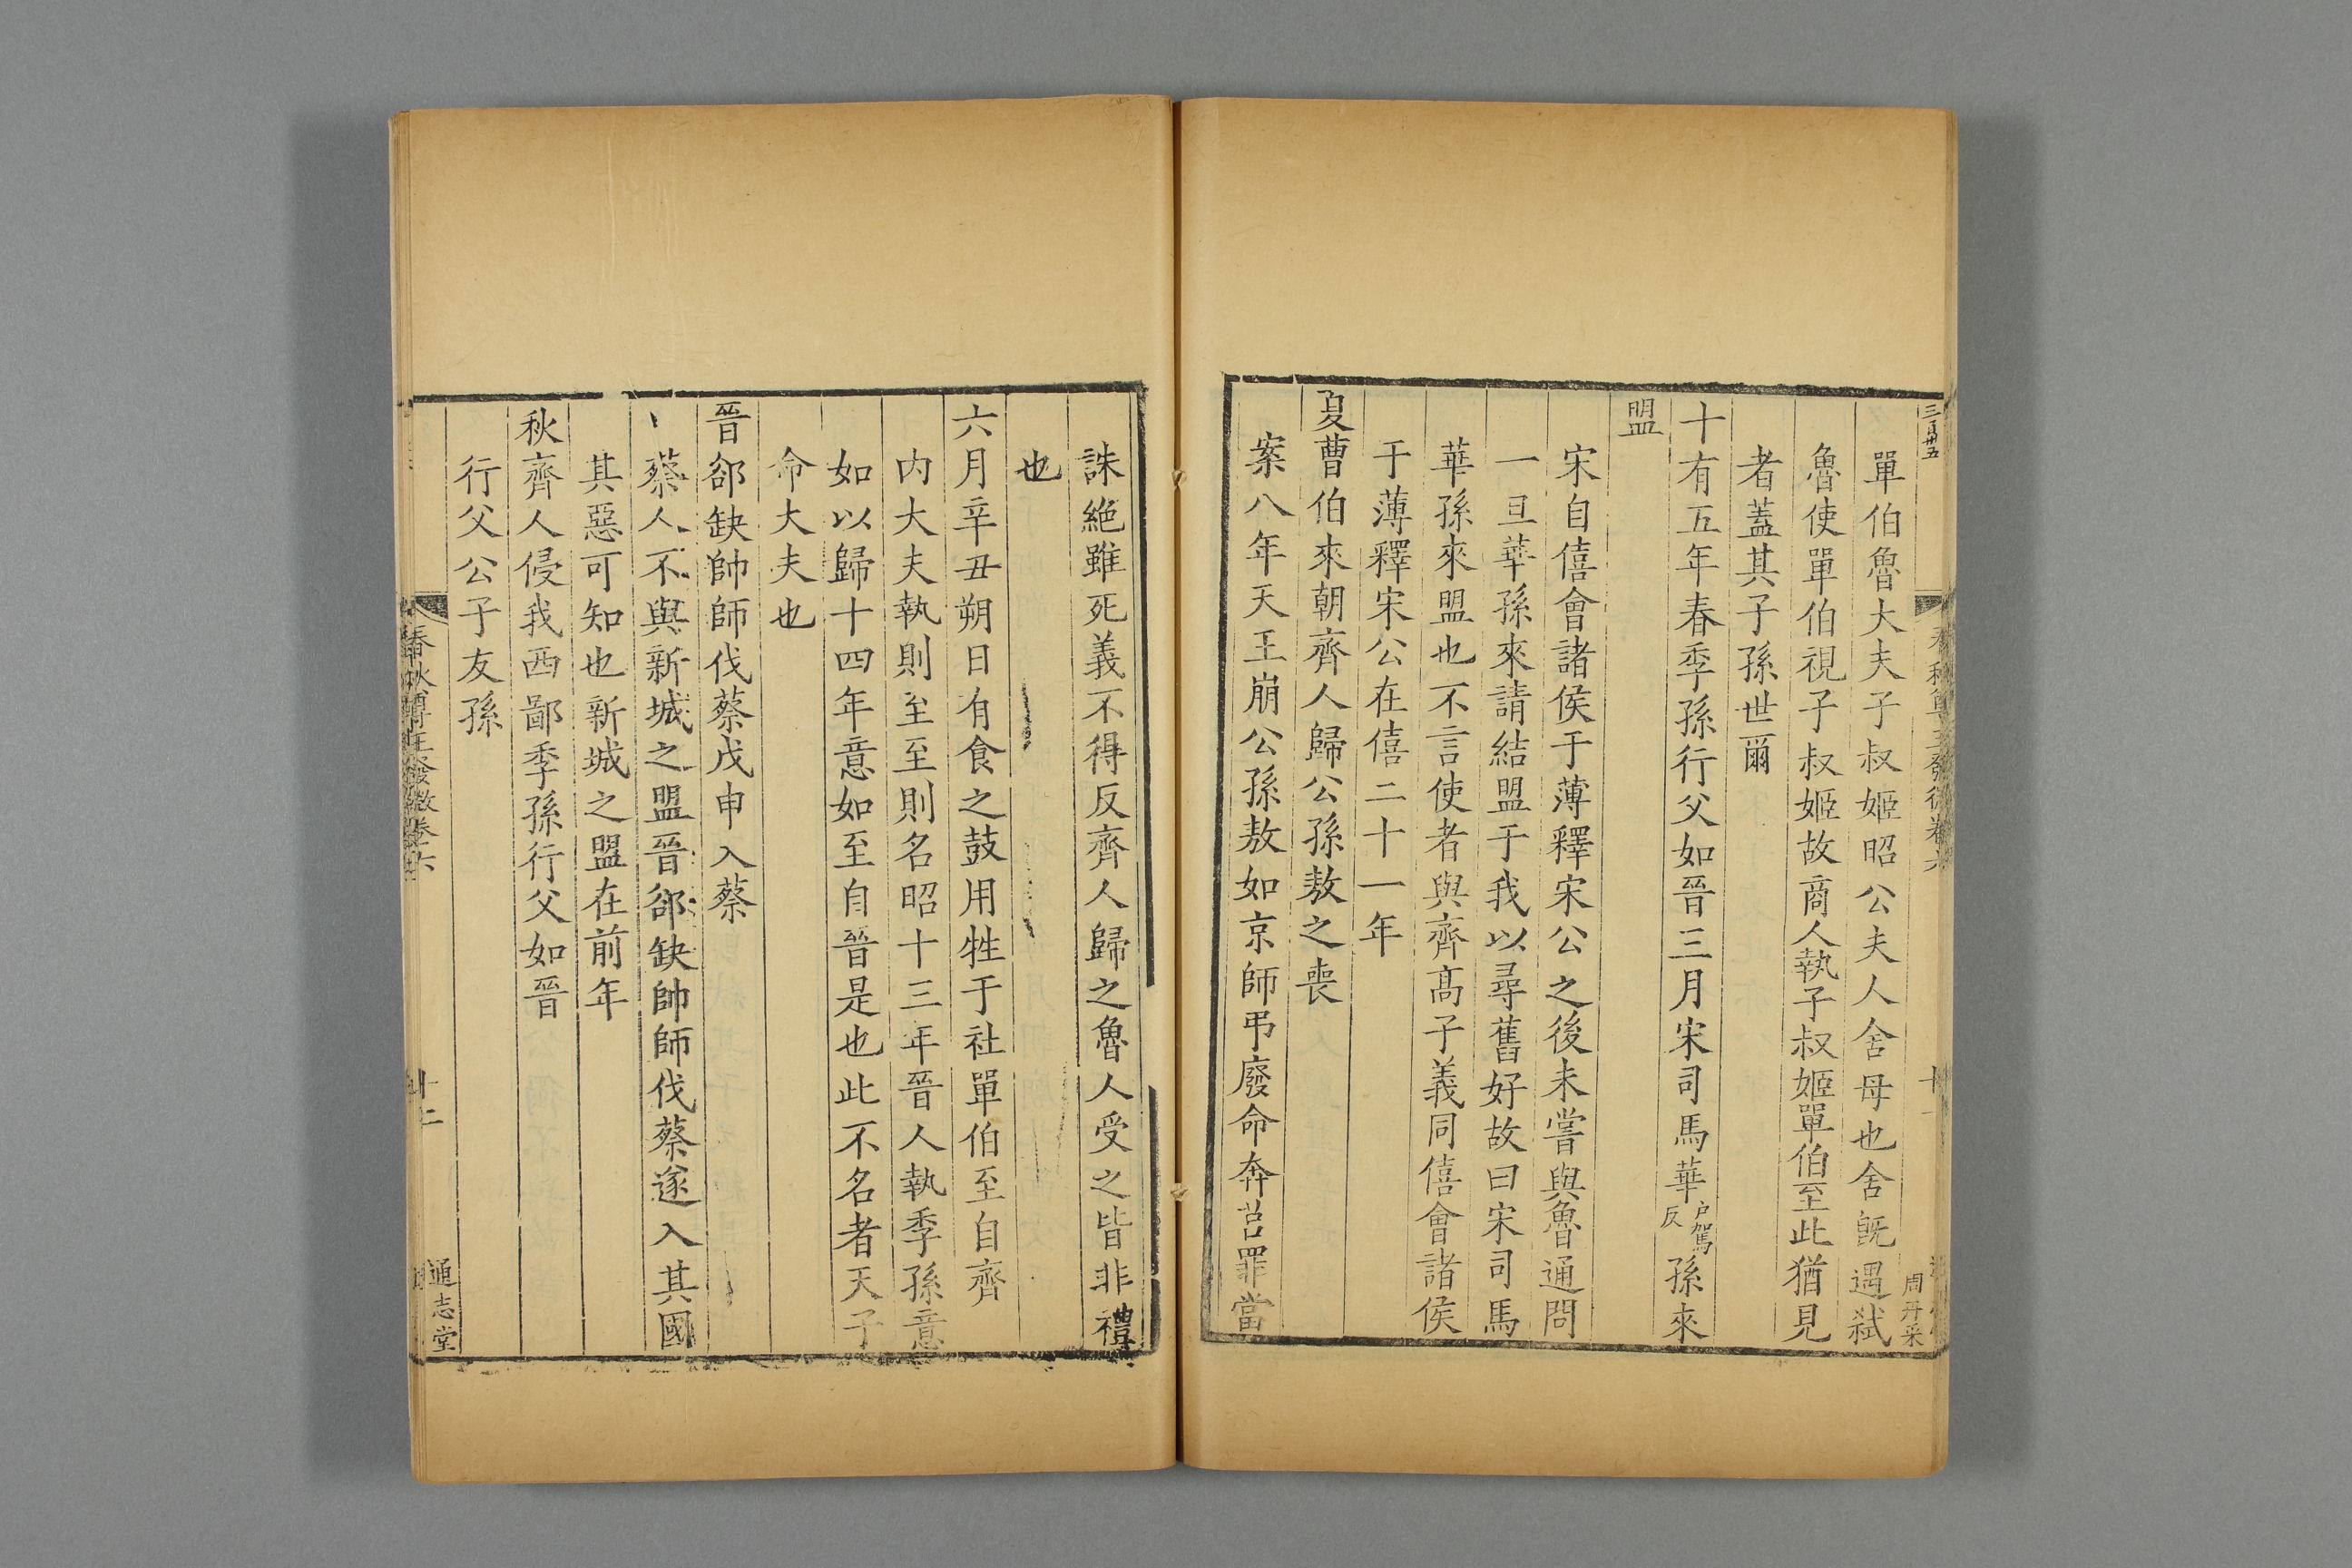 三百卅五
單伯魯大夫子叔姬昭公夫人舍母也舍旣遇弑
魯使單伯視子叔姬故商人執子叔姬單伯至此猶見
者蓋其子孫世爾
十有五年春季孫行父如晉三月宋司馬華户駕反孫來
盟
宋自僖會諸侯于薄釋宋公之後未嘗與魯通問
一旦華孫來請結盟于我以尋舊好故曰宋司馬
華孫來盟也不言使者與齊髙子義同僖會諸侯
于薄釋宋公在僖二十一年
夏曹伯來朝齊人歸公孫敖之喪
案八年天王崩公孫敖如京師弔廢命奔莒罪當
周丹采
誅絶雖死義不得反齊人歸之魯人受之皆非禮
也
六月辛丑朔日有食之鼓用牲于社單伯至自齊
内大夫執則至至則名昭十三年晉人執季孫意
如以歸十四年意如至自晉是也此不名者天子
命大夫也
晉郤缺帥師伐蔡戊申入蔡
蔡人不與新城之盟晉郤缺帥師伐蔡遂入其國
其惡可知也新城之盟在前年
秋齊人侵我西鄙季孫行父如晉
行父公子友孫
通志堂